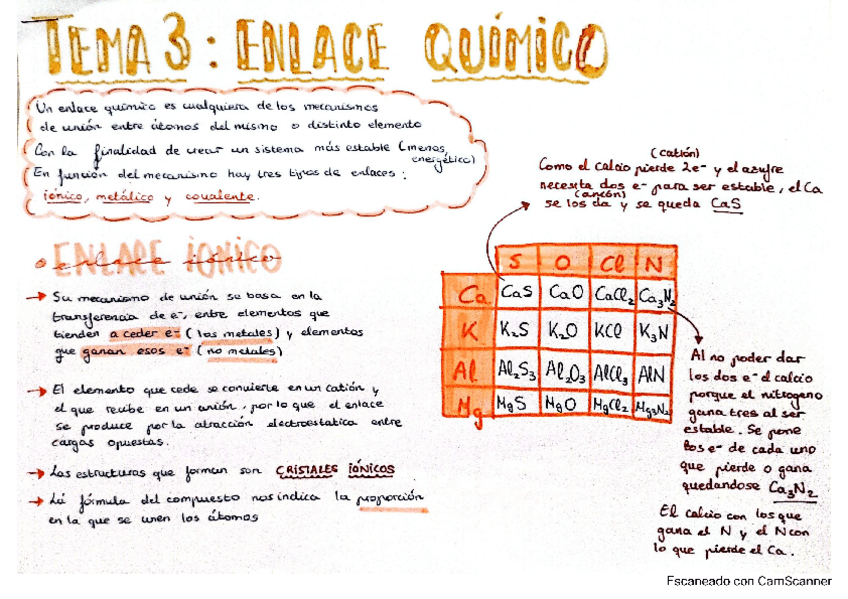 TEMA 3: ENLACE QUÍMICO
Un enlace químico es cualquiera de los mecanismos
de unión entre átomos del mismo o distinto elemento
Con la finalidad de crear un sistema más estable (menos
energético)
En función del mecanismo hay tres tipos de enlaces:
iónico, metálico y covalente.
(catión)
Como el calcio pierde 2e⁻ y el azufre
necesita dos e⁻ para ser estable, el Ca
(anión)
se los da y se queda CaS
ENLACE IÓNICO
enlace iónico
→ Su mecanismo de unión se basa en la
transferencia de e⁻, entre elementos que
tienden a ceder e⁻ (los metales) y elementos
que ganan esos e⁻ (no metales)
→ El elemento que cede se convierte en un catión y
el que recibe en un anión, por lo que el enlace
se produce por la atracción electrostatica entre
cargas opuestas.
→ Las estructuras que forman son CRISTALES IÓNICOS
→ La fórmula del compuesto nos indica la proporción
en la que se unen los átomos
S O Cl N
Ca CaS CaO CaCl₂ Ca₃N₂
K K₂S K₂O KCl K₃N
Al Al₂S₃ Al₂O₃ AlCl₃ AlN
Mg MgS MgO MgCl₂ Mg₃N₂
Al no poder dar
los dos e⁻ el calcio
porque el nitrogeno
gana tres al ser
estable. Se pone
los e⁻ de cada uno
que pierde o gana
quedandose Ca₃N₂
El calcio con los que
gana el N y el N con
lo que pierde el Ca.
Escaneado con CamScanner